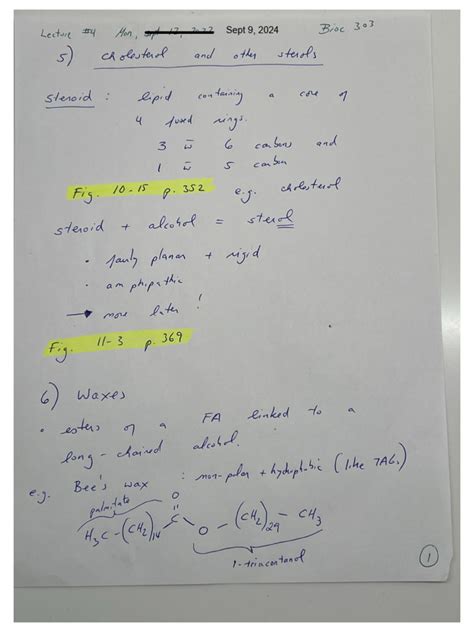 Lecture #4 Mon, Sept 9, 2024 Bioc 303
5) cholesterol and other sterols
steroid : lipid containing a core of
4 fused rings.
3 w̄ 6 carbons and
1 w̄ 5 carbon
Fig. 10-15 p. 352 e.g. cholesterol
steroid + alcohol = sterol
• fairly planar + rigid
• amphipathic
→ more later !
Fig. 11-3 p. 369
6) Waxes
• esters of a FA linked to a
long-chained alcohol.
e.g. Bee's wax : non-polar + hydrophobic (like TAGs)
palmitate
O
H3C-(CH2)14 C O-(CH2)29-CH3
1-triacontanol
1